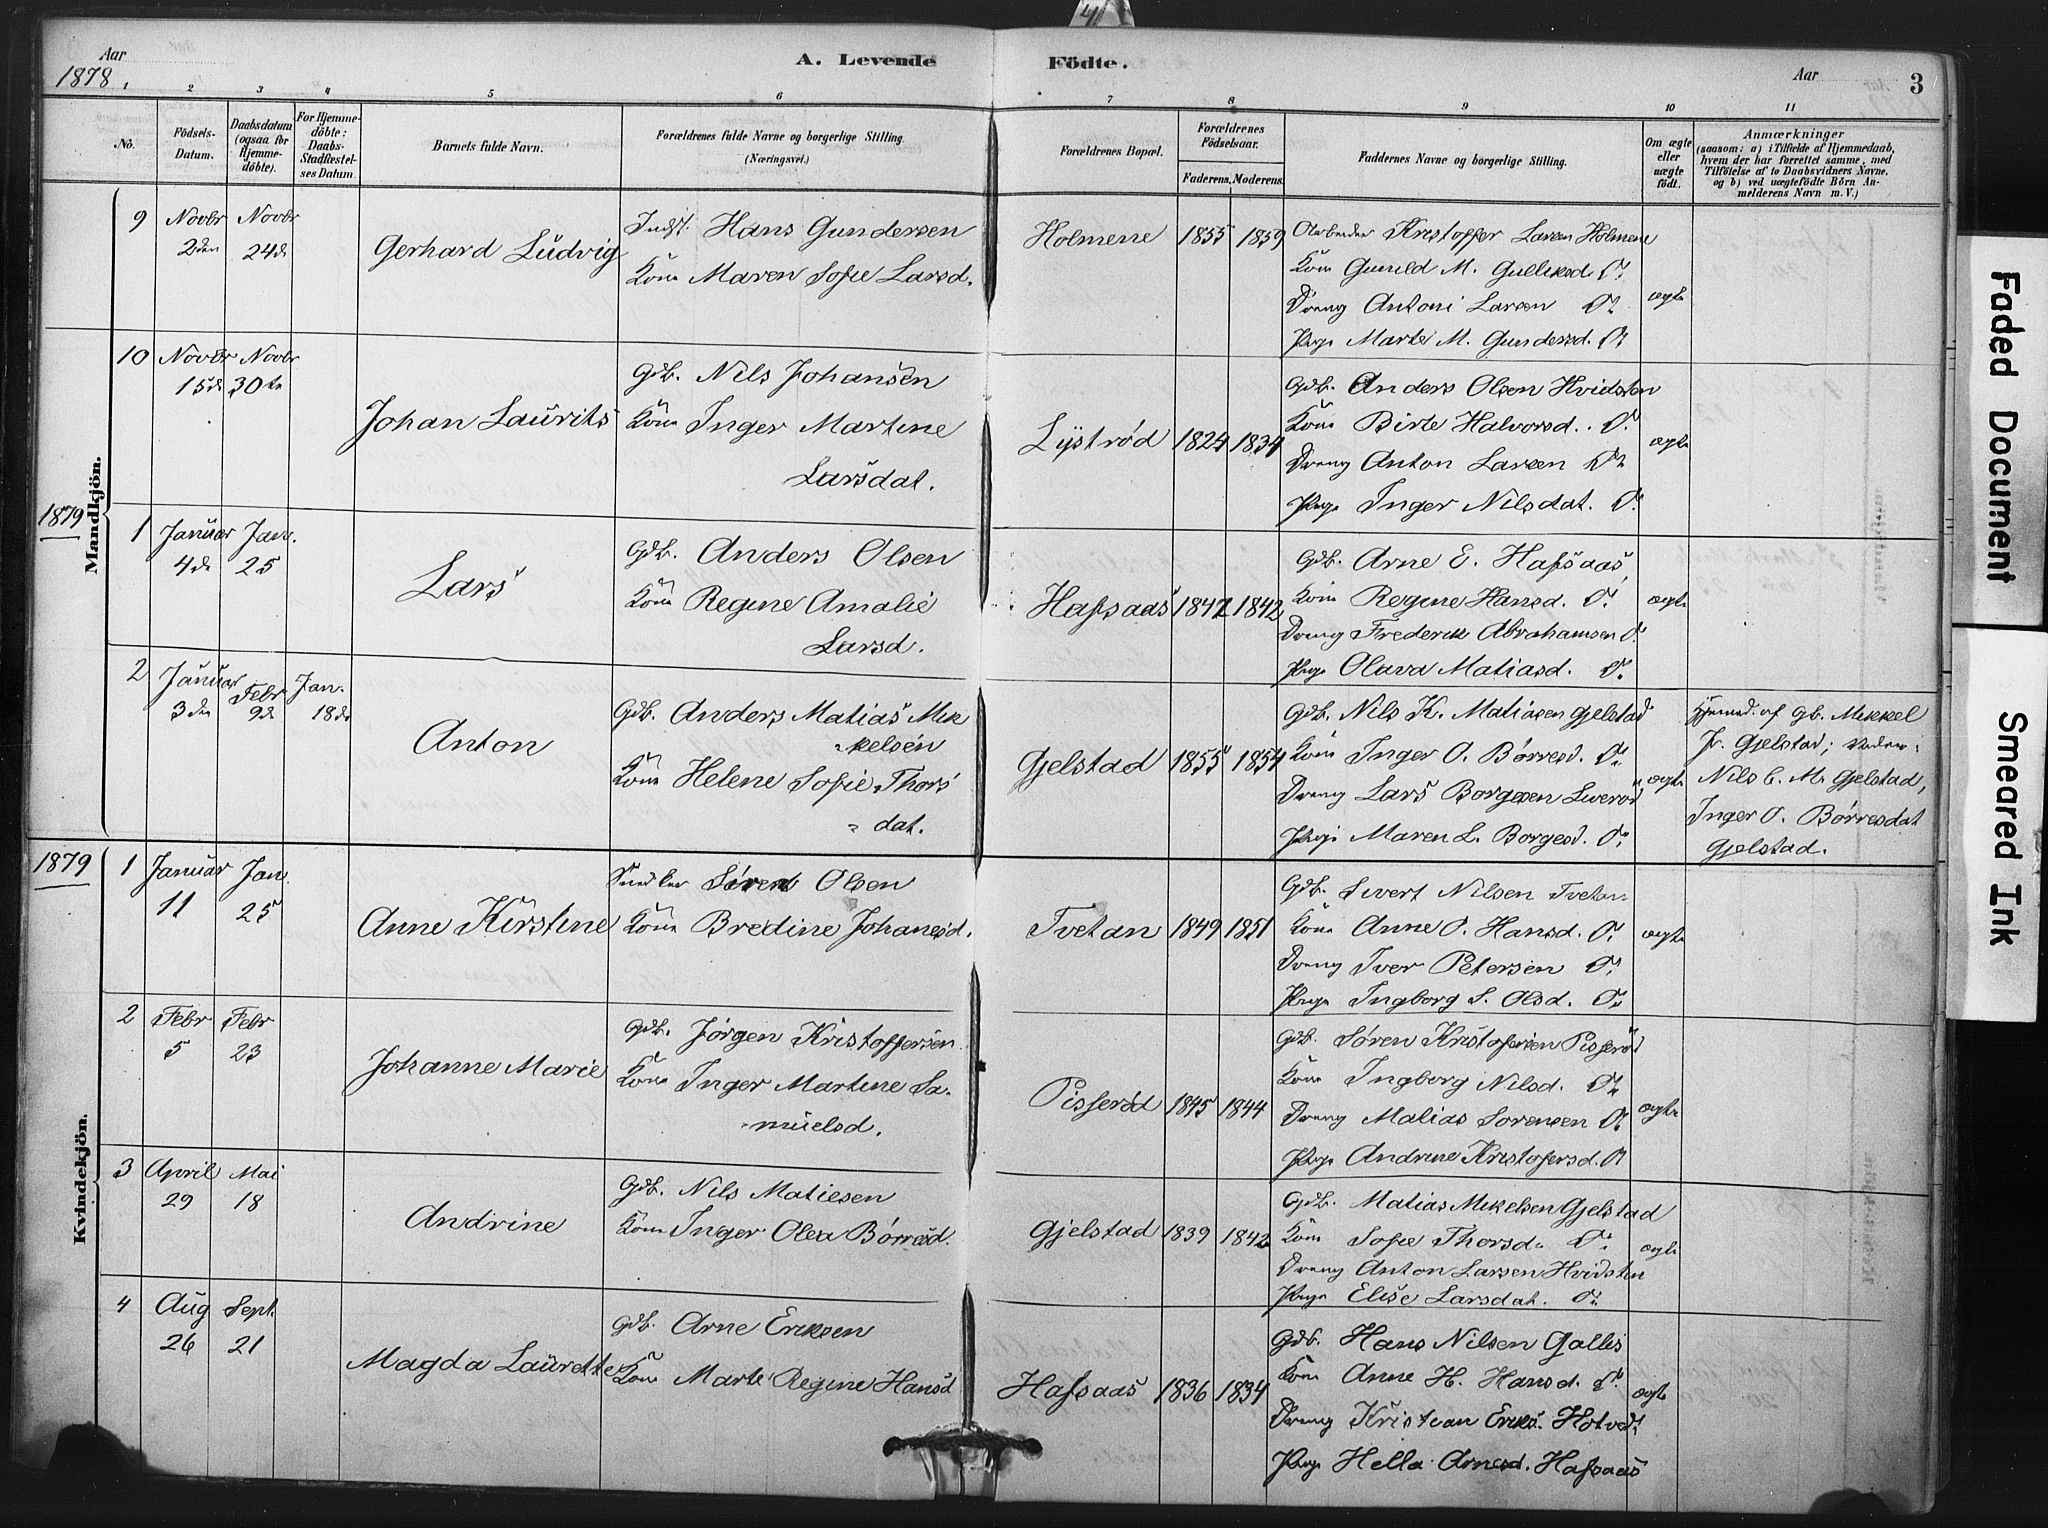 Aar
1878
A. Levende Födte.
Aar
3
1 2 3 4 5 6 7 8 9 10 11
No.
Födsels-Datum.
Daabsdatum (ogsaa for Hjemmedöbte).
For Hjemmedöbte: Daabs-Stadfæstelses Datum.
Barnets fulde Navn.
Forældrenes fulde Navne og borgerlige Stilling. (Næringsvei.)
Forældrenes Bopæl.
Forældrenes Födselsaar.
Faderens. Moderens.
Faddernes Navne og borgerlige Stilling.
Om ægte eller uægte födt.
Anmærkninger
(saasom: a) i Tilfælde af Hjemmedaab,
hvem der har forrettet samme, med
Tilföielse af to Daabsvidners Navne,
og b) ved uægtefödte Börn An-
melderens Navn m. V.)
Mandkjön.
9 Novbr 2den Novbr 24de
Gerhard Ludvig
Indst. Hans Gundersen
Kone Maren Sofie Larsd.
Holmene 1855 1859
Arbeider Kristoffer Larsen Holmene
Kone Gunild M. Gulliksd. Do
Dreng Antoni Larsen Do
Pige Marte M. Gundersd. Do
ægte
10 Novbr 15de Novbr 30te
Johan Laurits
Gdb. Nils Johansen
Kone Inger Martine
Larsdat.
Lystrød 1824 1834
Gdb. Anders Olsen Hvidsten
Kone Birte Halvorsd. Do
Dreng Anton Larsen Do
Pige Inger Nilsdat. Do
ægte
1879
1 Januar 4de Jan. 25
Lars
Gdb. Anders Olsen
Kone Regine Amalie
Larsd.
Hafsaas 1847 1842
Gdb. Arne E. Hafsaas
Kone Regine Hansd. Do
Dreng Frederik Abrahamsen Do
Pige Olava Matiasd. Do
ægte
2 Januar 3den Febr 9de Jan. 18de
Anton
Gdb. Anders Matias Mik
kelsen
Kone Helene Sofie Thors
dat.
Gjelstad 1855 1854
Gdb. Nils K. Matiasen Gjelstad
Kone Inger O. Børresd. Do
Dreng Lars Borgesen Sverød
Pige Maren L. Borgesd. Do
ægte
Hjemmed. af Gb. Mikkel
Jr. Gjelstad; Vidner:
Nils C. M. Gjelstad,
Inger O. Børresdat
Gjelstad.
Kvindekjön.
1879
1 Januar 11 Jan. 25
Anne Kirstine
Snedker Søren Olsen
Kone Bredine Johanesd.
Tvetan 1849 1851
Gdb. Sivert Nilsen Tvetan
Kone Anne O. Hansd. Do
Dreng Iver Petersen Do
Pige Ingborg S. Olsd. Do
ægte
2 Febr 5 Febr 23
Johanne Marie
Gdb. Jørgen Kristoffersen
Kone Inger Martine Sa-
muelsd.
Pisserød 1845 1844
Gdb. Søren Kristofersen Pisserød
Kone Ingborg Nilsd. Do
Dreng Matias Sorensen Do
Pige Andrine Kristofersd. Do
ægte
3 April 29 Mai 18
Andrine
Gdb. Nils Matiesen
Kone Inger Olea Børresd.
Gjelstad 1839 1842
Gdb. Matias Mikelsen Gjelstad
Kone Sofie Thorsd. Do
Dreng Anton Larsen Hvidsten
Pige Elise Larsdat. Do
ægte
4 Aug 26 Sept. 21
Magda Laurette
Gdb. Arne Eriksen
Kone Marte Regine Hansd
Hafsaas 1836 1834
Gdb. Hans Nilsen Gallis
Kone Anne H. Hansd. Do
Dreng Kristian Eriks. Hotvedt
Pige Hella Arnesd. Hafsaas
ægte
Faded Document
Smeared Ink